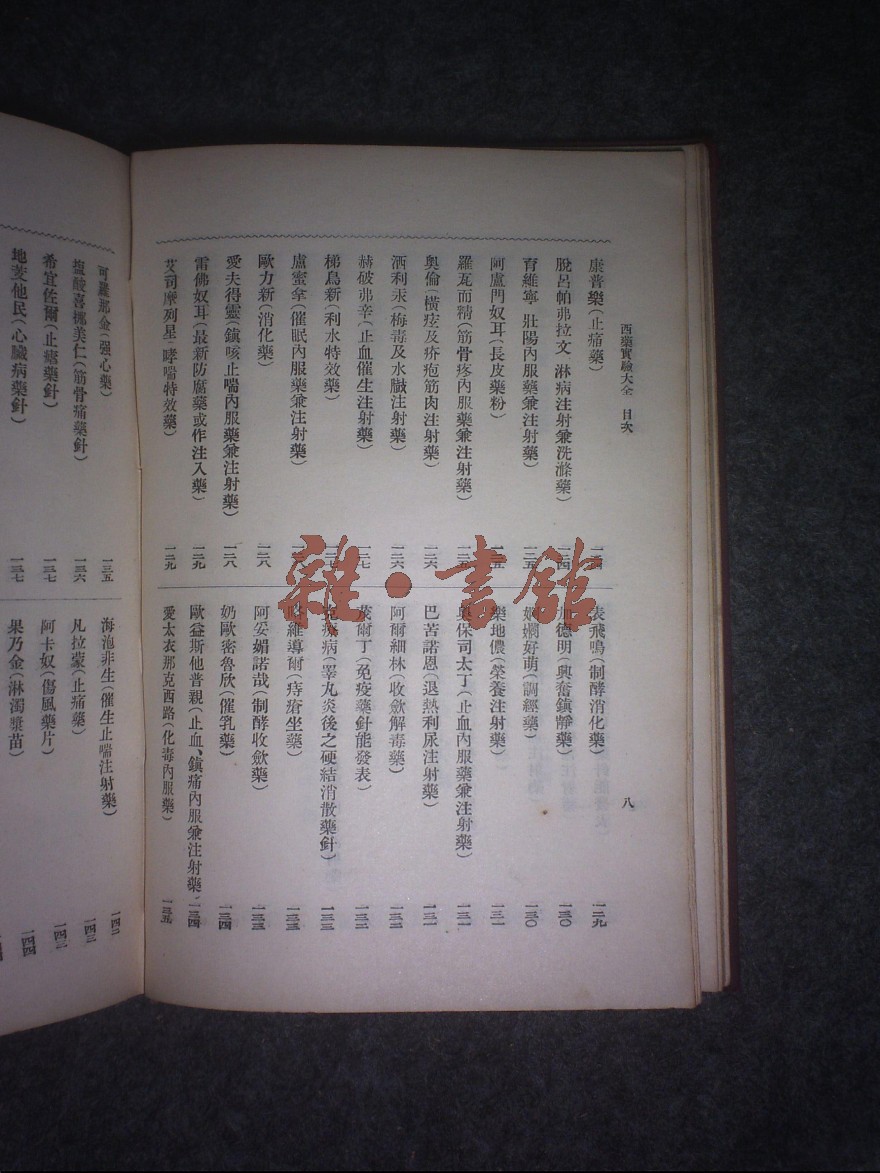 西藥實驗大全 目次
八
康普樂(止痛藥)
脫呂帕弗拉文(淋病注射兼洗滌藥)
育維寧(壯陽內服藥兼注射藥)
阿盧門奴耳(長皮藥粉)
羅瓦而精(筋骨疼內服藥兼注射藥)
奧倫(橫痃及疥疱筋肉注射藥)
洒利汞(梅毒及水臌注射藥)
赫破弗辛(止血催生注射藥)
梯鳥新(利水特效藥)
盧蜜拿(催眠內服藥兼注射藥)
歐力新(消化藥) 一二八
愛夫得靈(鎮咳止喘內服藥兼注射藥) 一二八
雷佛奴耳(最新防腐藥或作注入藥) 一二九
艾司摩列星(哮喘特效藥) 一二九
表飛鳴(制酵消化藥) 一二九
加德明(興奮鎮靜藥) 一三〇
嫻好萌(調經藥) 一三〇
樂地儂(榮養注射藥) 一三一
奧保司太丁(止血內服藥兼注射藥) 一三一
巴苦諾恩(退熱利尿注射藥) 一三一
阿爾細林(收斂解毒藥) 一三二
茂爾丁(免疫藥針能發表) 一三二
療病(睪丸炎後之硬結消散藥針) 一三三
維導爾(痔瘡坐藥) 一三三
阿妥媚諾哉(制酵收斂藥) 一三三
奶歐密魯欣(催乳藥) 一三四
歐益斯他普親(止血、鎮痛內服兼注射藥) 一三四
愛太衣那克西路(化毒內服藥) 一三五
可羅那金(强心藥) 一三五
塩酸喜挪美仁(筋骨痛藥針) 一三六
希宜佐爾(止瘧藥針) 一三七
地茭他民(心臟病藥針) 一三七
海泡非生(催生止喘注射藥) 一四二
凡拉蒙(止痛藥) 一四三
阿卡奴(傷風藥片) 一四三
果乃金(淋濁漿苗) 一四四
雜·書館